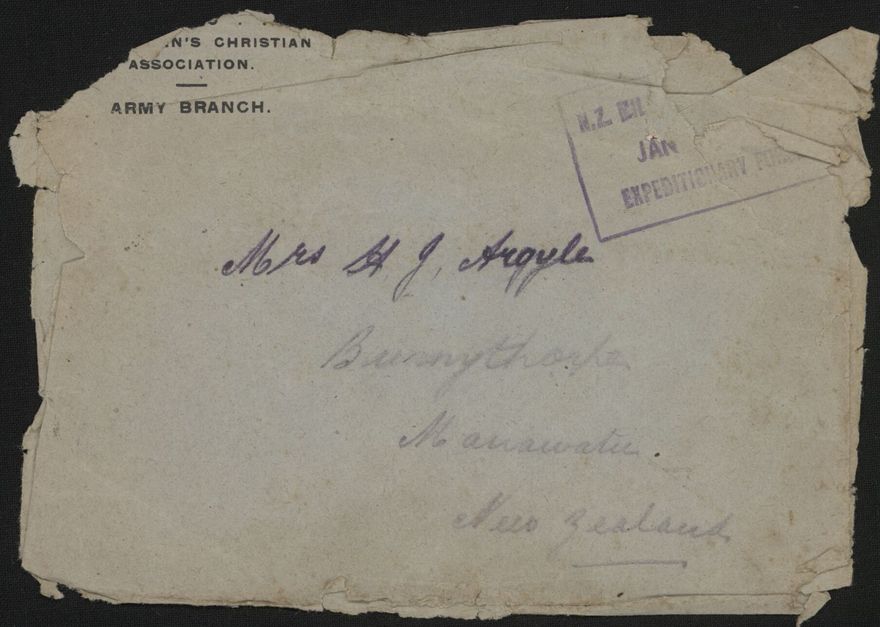 N'S CHRISTIAN
ASSOCIATION.
ARMY BRANCH.
N.Z.
JAN
EXPEDITIONARY
Mrs H J, Argyle
Bunnythorpe
Manawatu.
New Zealand